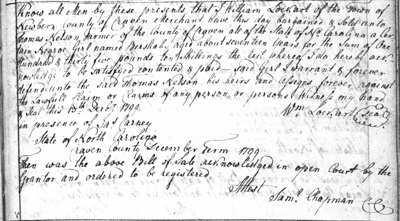 Know all Men by these presents that I William Lockart of the Town of
Newbern County of Craven Merchant have this day bargained & sold unto
Thomas Nelson farmer of the County of Craven all of the State of No. Carolina a Cer
tain Negroe Girl named aged about seventeen years for the Sum of One
Hundred & thirty five pounds the of I do hereby ack
nowledge to be satisfied contented & paid said Girl I Warrant & forever
defend unto the said Thomas Nelson his heirs and Assigns forever against
the lawfull Claim or Claims of any person or persons Witness my hand
& Seal this 10th Decr. 1799
Wm. Lockart (Seal)
in presence of Jas Carney
State of North Carolina
Craven County December Term 1799
Then was the above Bill of Sale acknowledged in open Court by the
Grantor and ordered to be registered
Attest
Saml. Chapman CC